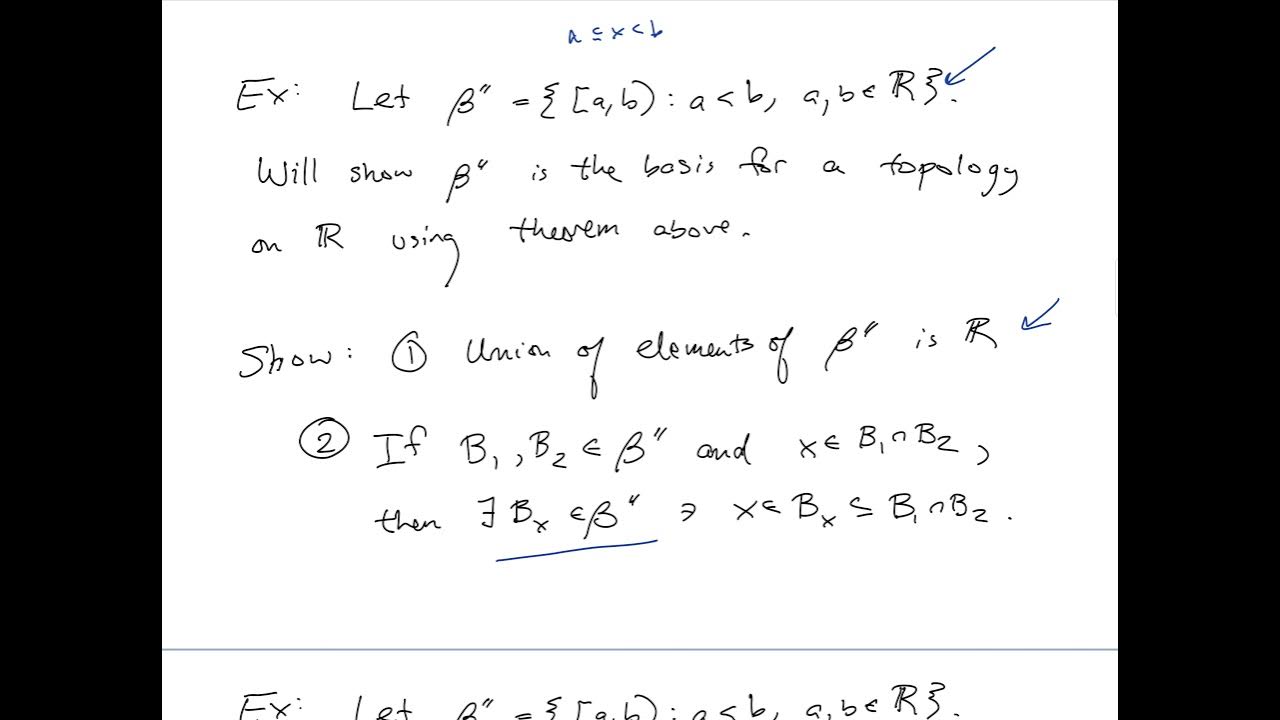 a ≤ x < b
Ex: Let β" = { [a,b) : a < b, a,b ∈ ℝ }.
Will show β" is the basis for a topology
on ℝ using theorem above.
Show: ① Union of elements of β" is ℝ
② If B₁, B₂ ∈ β" and x ∈ B₁ ∩ B₂,
then ∃ Bₓ ∈ β" ∋ x ∈ Bₓ ⊆ B₁ ∩ B₂.
Ex: Let β" = { [a,b) : a < b, a,b ∈ ℝ }.